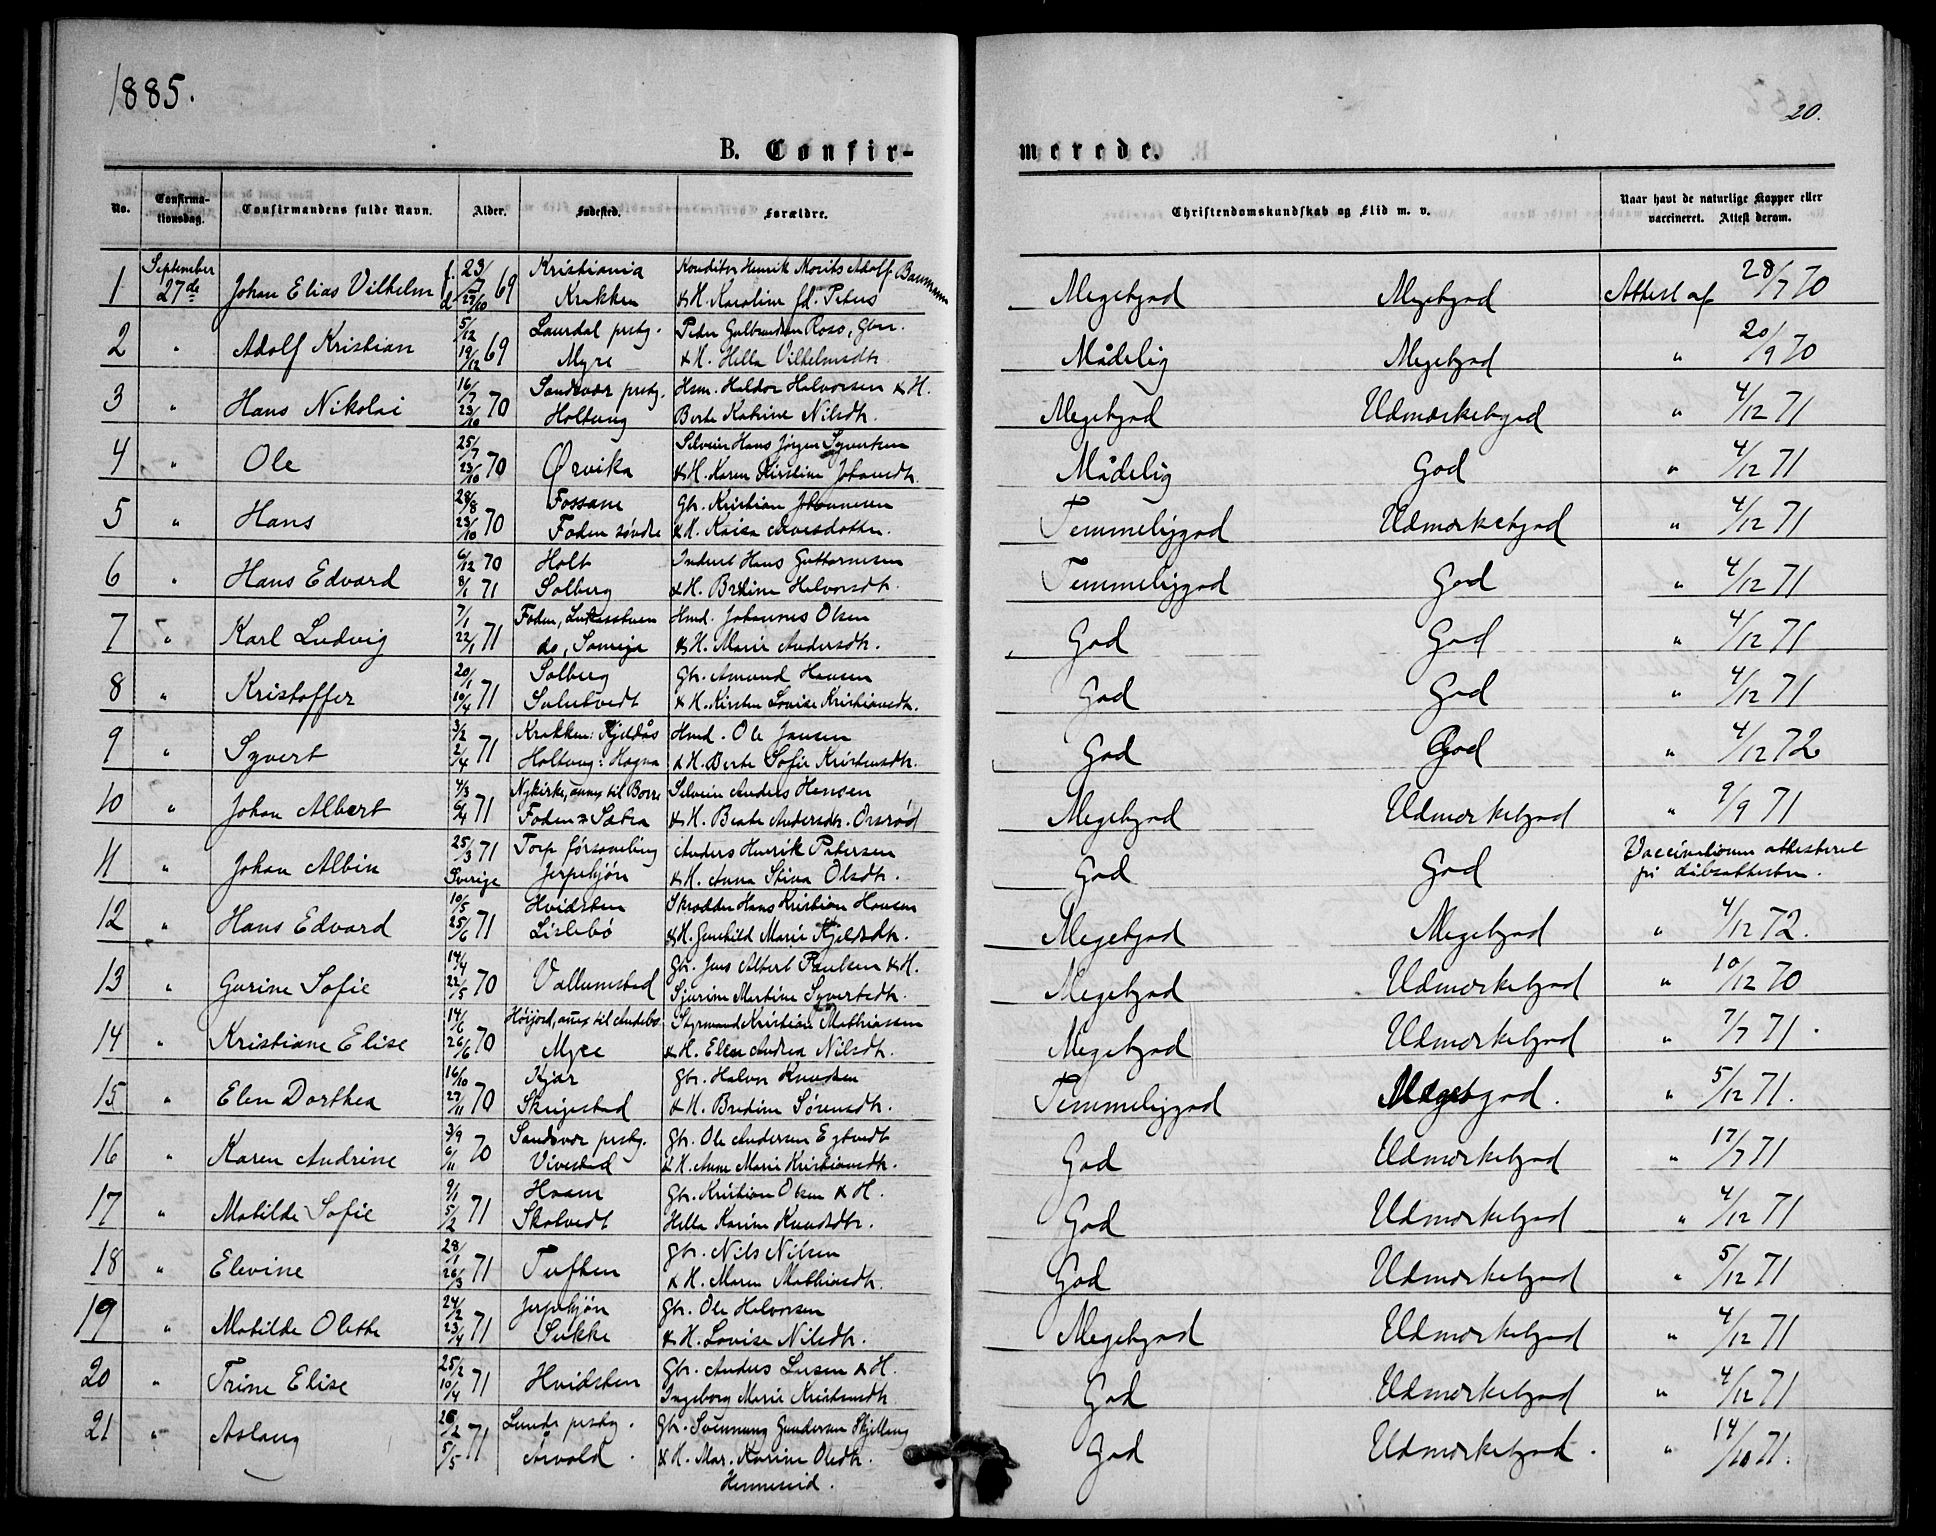 1885.
20.
B. Confir-
merede.
No.
Confirma-
tionsdag.
Confirmandens fulde Navn.
Alder.
Fødested.
Forældre.
Christendomskundskab og Flid m. v.
Naar havt de naturlige Kopper eller
vaccineret. Attest derom.
1 September Johan Elias Vilhelm f. 23/7 69 Kristiania Konditor Henrik Morits Adolf Baumann Megetgod Megetgod Attest af 28/7 70
27de d 29/10 Krakken & H. Karoline fd. Peters
2 " Adolf Kristian 5/12 69 Laurdal prstg. Peder Gulbrandsen Roso, Gbr. Mådelig Megetgod " 20/9 70
19/12 Myre & H. Hella Vilhelmsdtr.
3 " Hans Nikolai 16/7 70 Sandsvær prstg. Hsm. Haldor Halvorsen & H. Megetgod Udmærketgod " 4/12 71
23/10 Holtung Berte Katrine Nilsdtr.
4 " Ole 25/7 70 Ørvika Selveier Hans Jørgen Syvertsen Mådelig God " 4/12 71
23/10 & H. Karen Kirstine Johansdtr.
5 " Hans 28/8 70 Fossane Gbr. Kristian Johannesen Temmeliggod Udmærketgod " 4/12 71
23/10 Foden søndre & H. Kaisa Arvesdotter.
6 " Hans Edvard 6/12 70 Holt Inderst Hans Guttormsen Temmeliggod God " 4/12 71
8/1 71 Solberg & H. Bredine Halvorsdtr.
7 " Karl Ludvig 7/1 71 Foden, Lukasstuen Hmd. Johannes Olsen God God " 4/12 71
22/1 do, Somiga & H. Marie Andersdtr.
8 " Kristoffer 20/1 71 Solberg Gbr. Amund Hansen God God " 4/12 71
10/4 Sulutvedt & H. Kirsten Lovise Kristiansdtr.
9 " Syvert 3/2 71 Krakken: Kjeldås Hmd. Ole Jansen God God " 4/12 72
2/4 Holtung: Hagna & H. Berte Sofie Kristensdtr.
10 " Johan Albert 4/3 71 Nykirke, annex til Borre Selveier Anders Hansen Megetgod Udmærketgod " 9/9 71
6/4 Foden: Sætra & H. Beate Andersdtr. Orsrød
11 " Johan Albin 25/3 71 Torp församling Anders Henrik Petersen God God Vaccinationen attesteret
Sverige Jerpekjøn & H. Anna Stina Olsdtr. på dåbsattesten.
12 " Hans Edvard 10/5 71 Hvidsten Skrædder Hans Kristian Hansen Megetgod Megetgod " 4/12 72.
25/6 Lislebø & H. Gunhild Marie Kjeldsdtr.
13 " Gurine Sofie 14/4 70 Vallumstad Gbr. Jens Albert Paulsen & H. Megetgod Udmærketgod " 10/12 70
22/5 Sjurine Martine Syvertsdtr.
14 " Kristiane Elise 14/6 70 Høijord, annex til Andebo Styrmand Kristian Mathiassen Megetgod Udmærketgod " 7/7 71.
26/6 Myre & H. Elen Andrea Nilsdtr.
15 " Elen Dorthea 16/10 70 Kjær Gbr. Halvor Knudsen Temmeliggod Megetgod. " 5/12 71.
27/11 Skrigestad & H. Bredine Sørensdtr.
16 " Karen Andrine 3/9 70 Sandsvær prstg. Gbr. Ole Andersen Egtvedt God Udmærketgod " 17/7 71
6/11 Vivestad & H. Anne Marie Kristiansdtr.
17 " Matilde Sofie 9/1 71 Hvam Gbr. Kristian Olsen & H. God Udmærketgod " 4/12 71
5/2 Skatvedt Hella Karine Knudsdtr.
18 " Elevine 28/1 71 Tufken Gbr. Nils Nilsen God Udmærketgod " 5/12 71
26/3 & H. Maren Mathiasdtr.
19 " Matilde Olette 24/2 71 Jerpekjøn Gbr. Ole Halvorsen Megetgod Udmærketgod " 4/12 71
23/4 Sukke & H. Lovise Nilsdtr.
20 " Trine Elise 25/2 71 Hvidsten Gbr. Anders Larsen & H. God Udmærketgod " 4/12 71
10/4 Ingeborg Marie Kristensdtr.
21 " Aslaug 28/2 71 Lunde prstg. Gbr. Svennung Gundersen Skjelling God Udmærketgod. " 14/10 71.
5/5 Arvald. & H. Mar. Karine Olsdtr.
Hennseid.